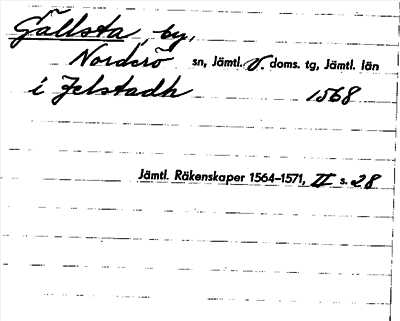 Gällsta, by,
Norderö sn, Jämtl. v. doms. tg, Jämtl. län
i Jelstadh 1568
Jämtl. Räkenskaper 1564–1571, II s. 28